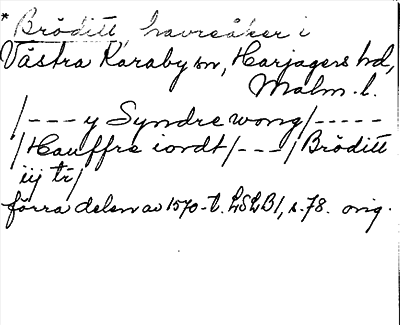 * Bröditt, havreåker i
Västra Karaby sn, Harjagers hd,
Malm. l.
/--- y Syndre wong/-----
/Hauffre iordt/---/Bröditt
iij tr/
förra delen av 1570-t. LSLB1, s. 78. orig.